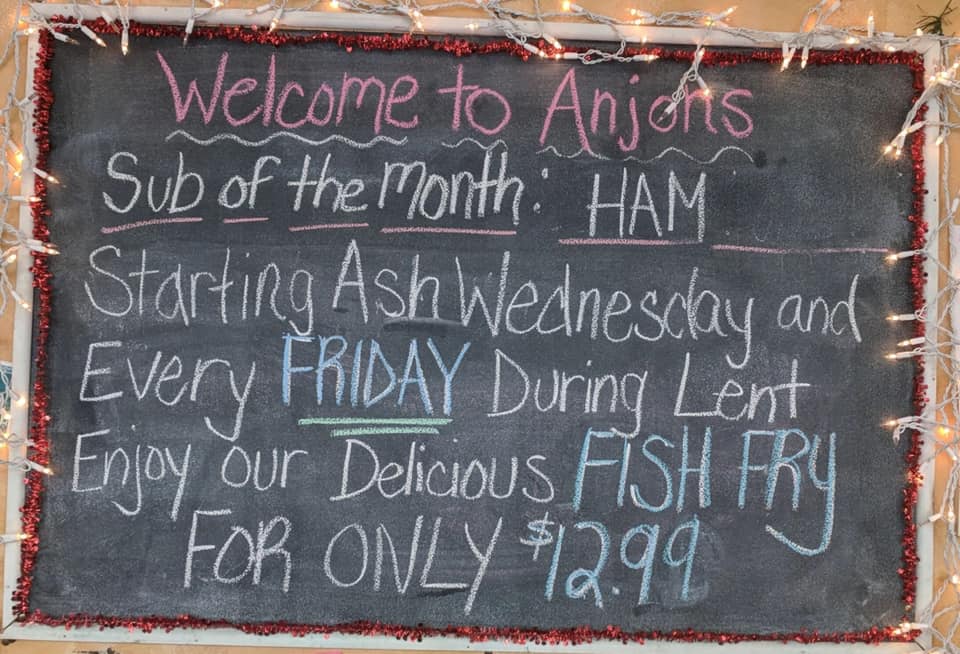 Welcome to Anjons
Sub of the month: HAM
Starting Ash Wednesday and
Every FRIDAY During Lent
Enjoy our Delicious FISH FRY
FOR ONLY $12.99